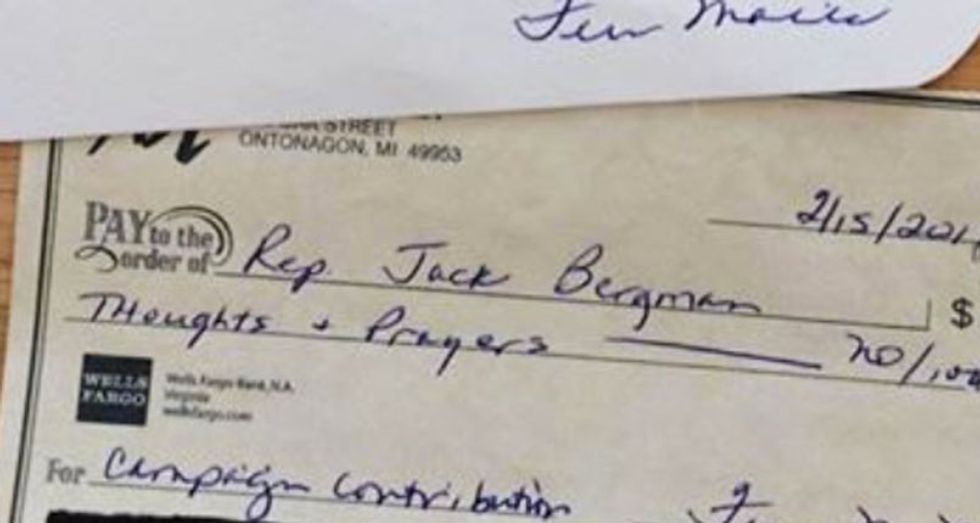 STREET
ONTONAGON, MI 49953
2/15/201
PAY to the order of Rep. Jack Bergman
$
Thoughts + Prayers no/100
WELLS FARGO
Wells Fargo Bank, N.A.
Virginia
wellsfargo.com
For Campaign Contribution